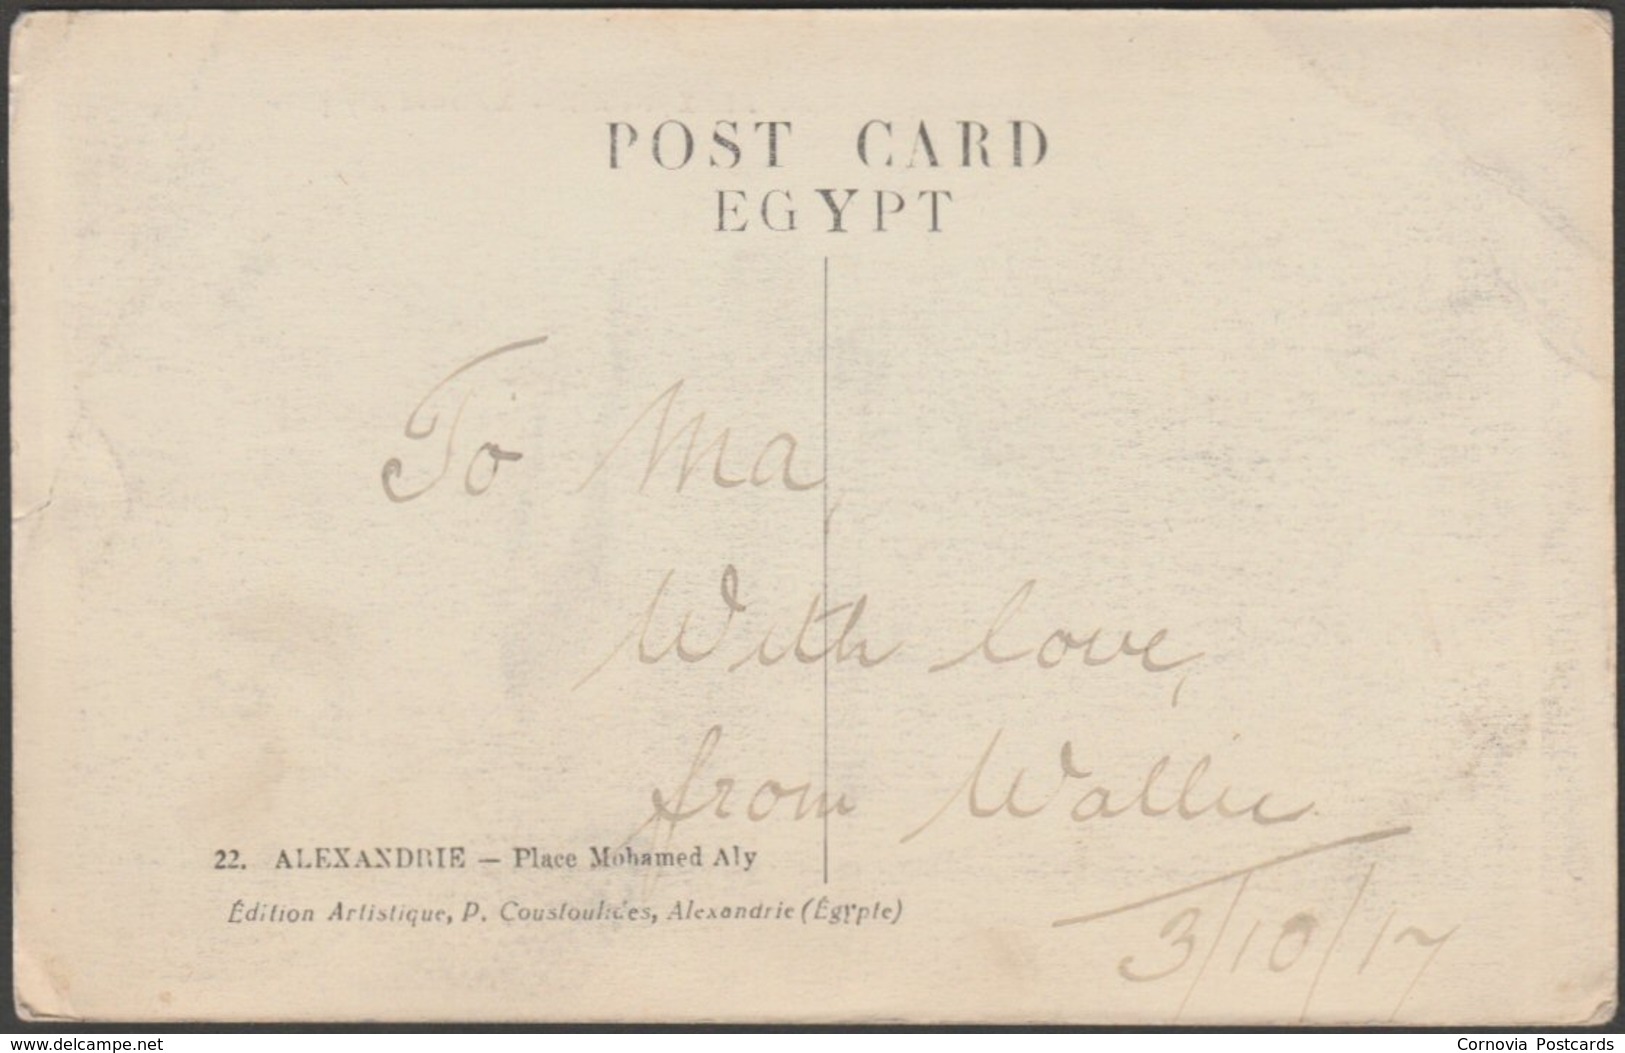 POST CARD
EGYPT
To Ma,
With love,
from Wallie
3/10/17
22. ALEXANDRIE — Place Mohamed Aly
Édition Artistique, P. Coustoulides, Alexandrie (Égypte)
www.delcampe.net
Cornovia Postcards